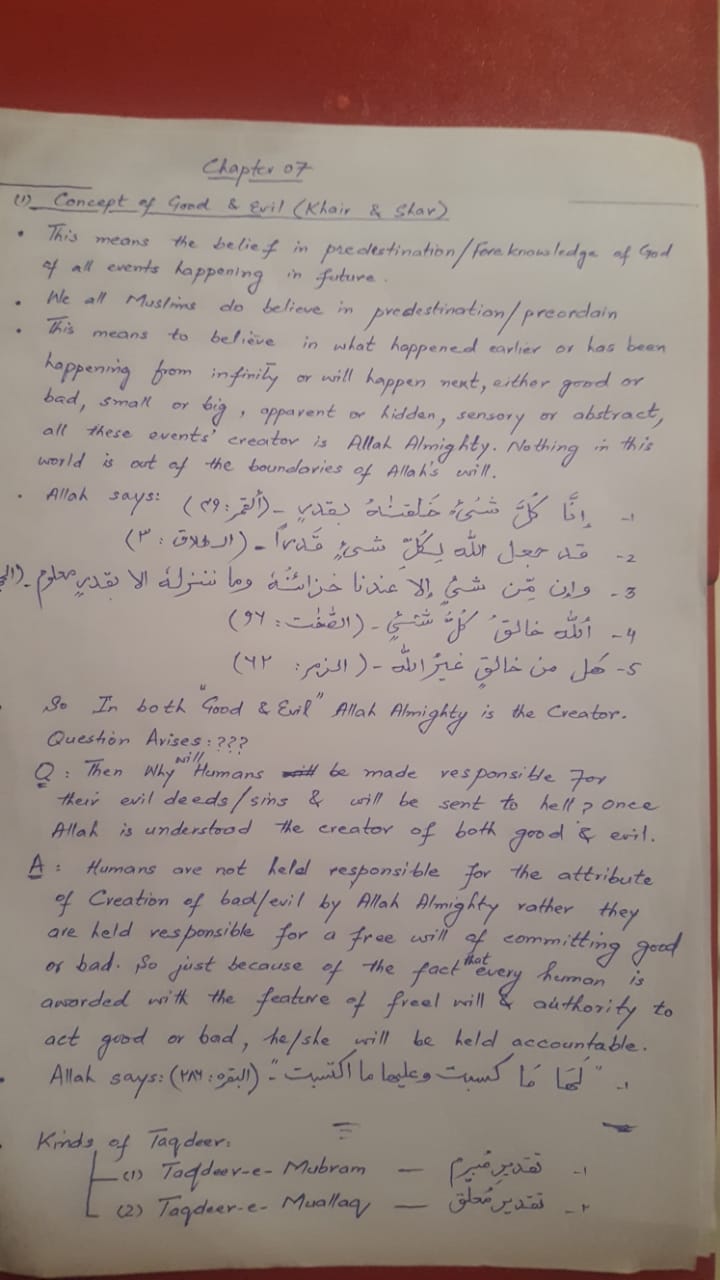 Chapter 07
(1) Concept of Good & Evil (Khair & Shar)
• This means the belief in predestination/Foreknowledge of God
of all events happening in future.
• We all Muslims do believe in predestination/preordain
• This means to believe in what happened earlier or has been
happening from infinity or will happen next, either good or
bad, small or big, apparent or hidden, sensory or abstract,
all these events' creator is Allah Almighty. Nothing in this
world is out of the boundaries of Allah's will.
• Allah says: ۱- إِنَّا كُلَّ شَئیٍ خَلَقنٰهُ بِقَدَرٍ - (القمر: ۴۹)
2- قد جعل الله لِكُلِّ شیٍٔ قَدْراً - (الطلاق: ۳)
3- وإن مِّن شیٍٔ إلا عندنا خزائنُهُ وما ننزلهُ الا بقدرٍ معلوم -
4- اَللّٰه خالقُ كُلِّ شَیٍٔ - (الصّٰفّٰت: ۹۶)
5- هَل من خالقٍ غیرُ اللّٰه - (الزمر: ۶۲)
So In both "Good & Evil" Allah Almighty is the Creator.
Question Arises: ???
Q: Then Why will Humans be made responsible for
their evil deeds/sins & will be sent to hell? once
Allah is understood the creator of both good & evil.
A: Humans are not held responsible for the attribute
of Creation of bad/evil by Allah Almighty rather they
are held responsible for a free will of committing good
or bad. So just because of the fact that every human is
awarded with the feature of freel will & authority to
act good or bad, he/she will be held accountable.
• Allah says: ۱- "لَهَا مَا كسبت وعليها ما اكتسبت" - (البقره: ۲۸۶)
• Kinds of Taqdeer:
(1) Taqdeer-e-Mubram — ۱- تقدیرِ مُبرم
(2) Taqdeer-e-Muallaq — ۲- تقدیرِ مُعلّق